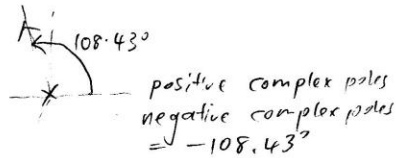 108.43°
positive complex poles
negative complex poles
= -108.43°